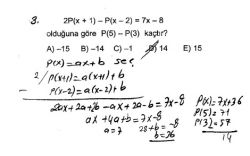 3. 2P(x + 1) – P(x – 2) = 7x – 8
olduğuna göre P(5) – P(3) kaçtır?
A) –15 B) –14 C) –1 D) 14 E) 15
P(x) = ax + b seç
2/ P(x+1) = a(x+1) + b
P(x-2) = a(x-2) + b
2ax + 2a + 2b - ax + 2a - b = 7x - 8
ax + 4a + b = 7x - 8
a = 7 28 + b = -8
b = 36
P(x) = 7x + 36
P(5) = 71
P(3) = 57
14